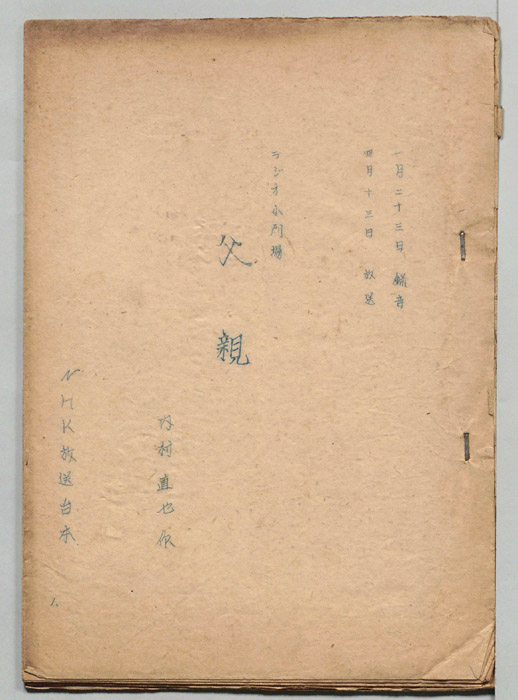 一月二十三日 録音
四月十三日 放送
ラジオ小劇場
父親
内村直也作
NHK放送台本
1.